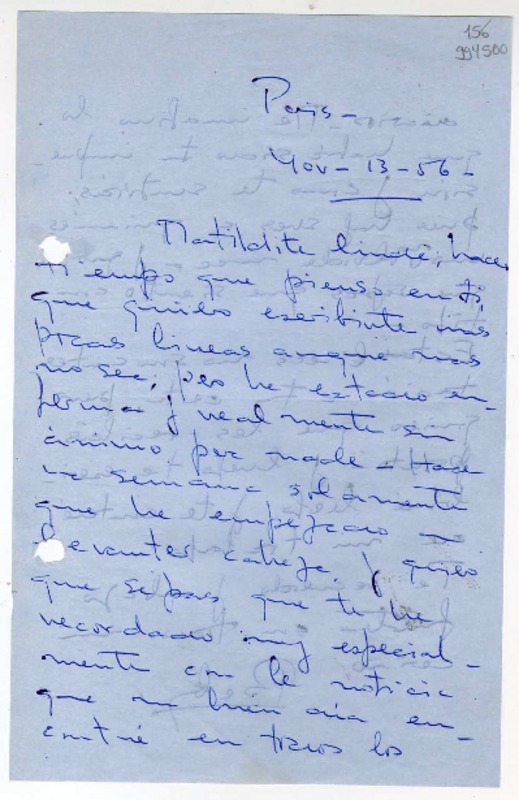 156
994500
Paris -
Nov - 13 - 56 -
Matildita linda, hace
tiempo que pienso en ti,
que quiero escribirte unas
pocas lineas aunque mas
no sea, pero he estado en-
ferma y realmente sin
ánimo para nada - Hace
una semana solamente
que he empezado a
levantar cabeza. Y quiero
que sepas que te he
recordado muy especial-
mente con la noticia
que un buen día en-
contré en todos los